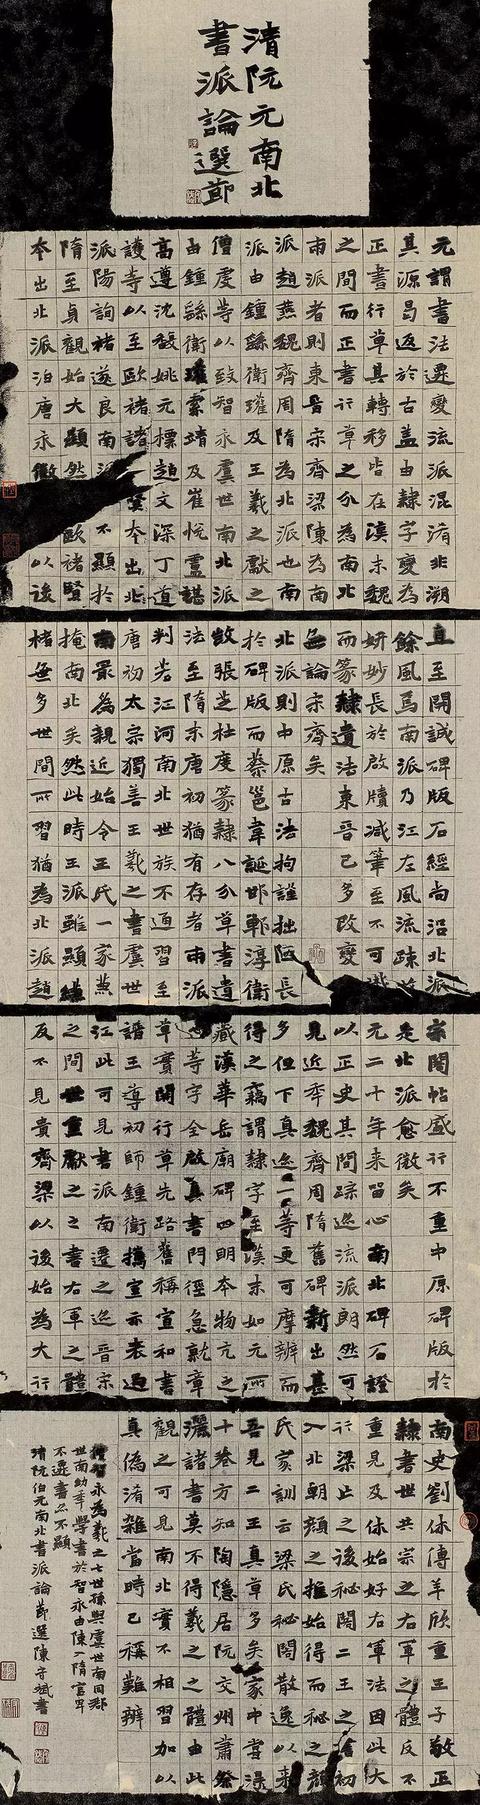 清阮元南北
書派論選節
元謂書法遷變流派混淆非溯
其源曷返於古蓋由隸字變為
正書行草其轉移皆在漢末魏
之間而正書行草之分為南北
南派者則東晉宋齊梁陳為南
派趙燕魏齊周隋為北派也南
派由鍾繇衛瓘及王羲之獻之
僧虔等以致智永虞世南北派
由鍾繇衛瓘索靖及崔悅盧諶
高遵沈馥姚元標趙文深丁道
護等以至歐褚諸賢本出北
派陽詢褚遂良南派不顯於
隋至貞觀始大顯然歐褚賢
本出北派洎唐永徽以後
直至開誠碑版石經尚沿北派
餘風焉南派乃江左風流疎放
妍妙長於啟牘減筆至不可
而篆隸遺法東晉已多改變
無論宗齊矣
北派則中原古法拘謹拙陋長
於碑版而蔡邕韋誕邯鄲淳衛
敳張芝杜度篆隸八分草書遺
法至隋末唐初猶有存者南派
判若江河南北世族不通習至
唐初太宗獨善王羲之書虞世
南最為親近始令王氏一家兼
掩南北矣然此時王派雖顯縑
楮無多世間所習猶為北派趙
宋閣帖盛行不重中原碑版於
是北派愈微矣
元二十年来留心南北碑石證
以正史其間踪迹流派朗然可
見近年魏齊周隋舊碑新出甚
多但下真迹一等更可摩辨而
得之竊謂隸字至漢末如元所
藏漢華岳廟碑四明本物亢之
等字全啟真書門徑急就章
草實開行草先路舊稱宣和書
譜王導初師鍾衛攜宣示表過
江此可見書派南遷之迹晉宗
之間世重獻之之書右軍之體
反不見貴齊梁以後始為大行
南史劉休傳羊欣重王子敬正
隸書世共宗之右軍之體反不
重見及休始好右軍法因此大
行梁止之後秘閣二王之書初
入北朝顏之推始得而秘之顏
氏家訓云梁氏秘閣散逸以來
吾見二王真草多矣家中嘗得
十卷方知陶隱居阮交州蕭祭
灑諸書莫不得羲之之體由此
觀之可見南北實不相習加以
真偽淆雜當時已稱難辨
僧智永為羲之七世孫與虞世南同郡
世南幼年學書於智永由陳入隋官卑
不遷書名不顯
清阮伯元南北書派論節選陳守斌書